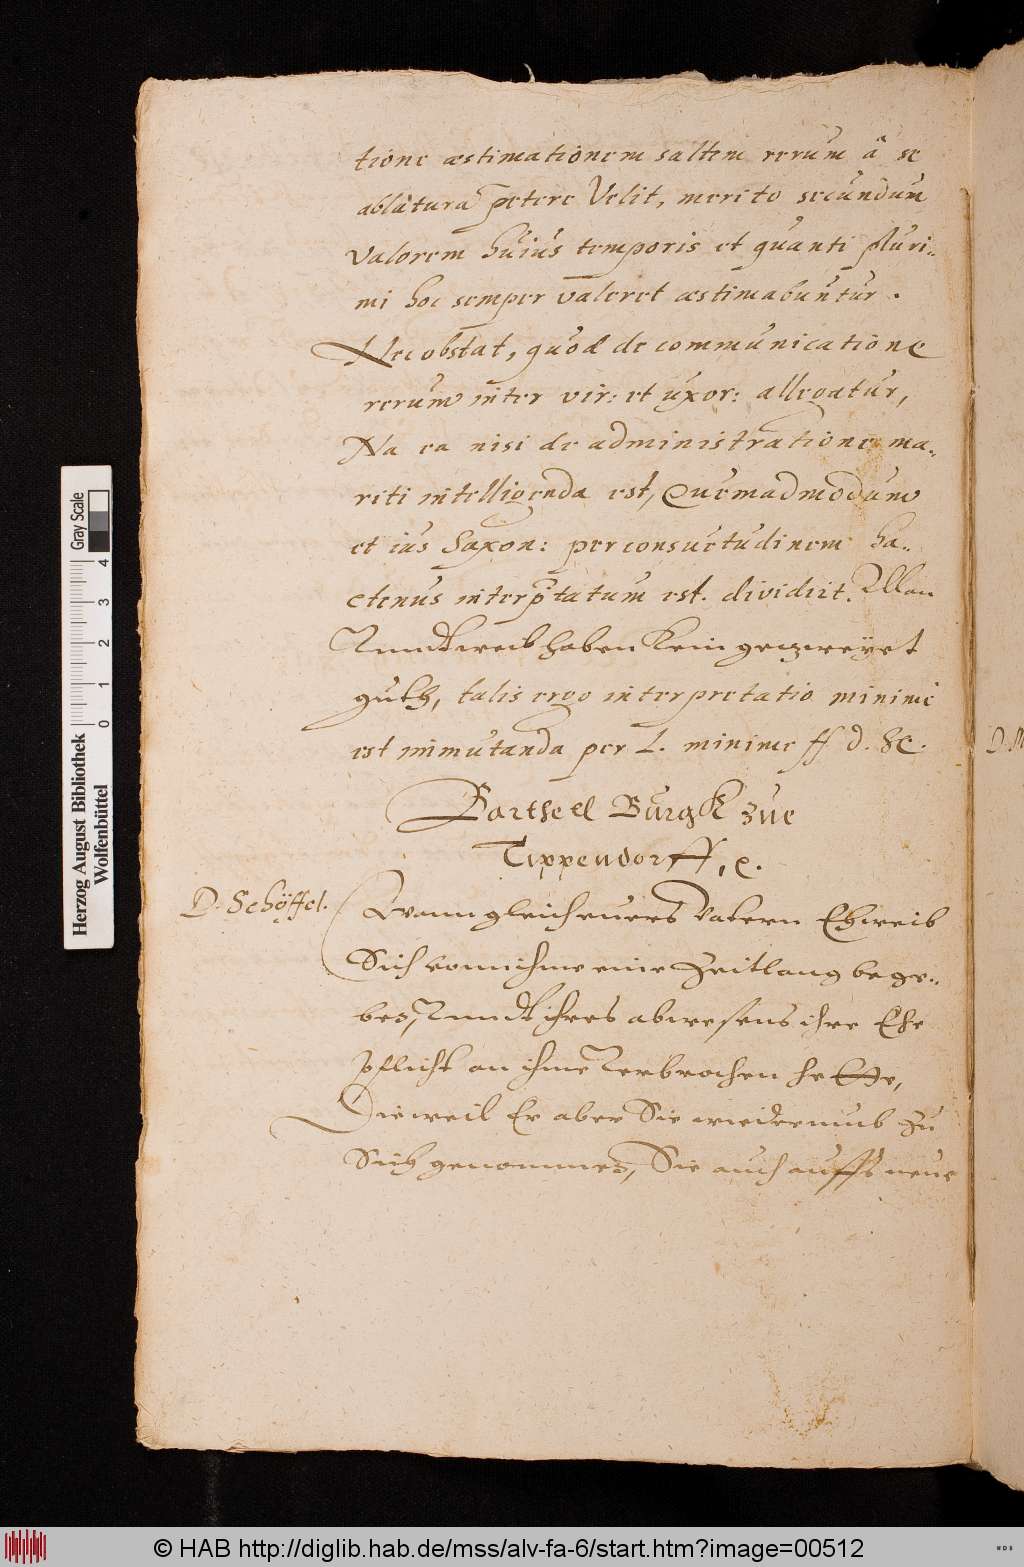 tione æstimationem saltem rerum â se
ablatura petere Velit, merito secundum
valorem huius temporis et quanti pluri-
mi hoc semper valeret æstimabuntur.
Nec obstat, quod de communicatione
rerum inter vir: et uxor: allegatur,
Na ea nisi de administratione ma-
riti intelligenda est, Quemadmodum
et ius Saxon: per consuetudinem ha-
ctenus interptatum est. dividirt. Man
Vnndt weib haben kein gezweyet
guth, talis ergo interpretatio minime
est immutanda per L. minime ff d. &c.
Barthell Burgk zue
Tippendorff, c.
D. Schöffel.
Wann gleich euers Vatern Ehweib
Sich vonn ihme eine Zeitlang bege-
ben, Vnndt ihres abwesens ihre Ehe
pflicht an ihme Verbrochen hette,
Dieweil Er aber Sie wiederumb zu
Sich genommen, Sie auch auffs neue
D. M
Herzog August Bibliothek
Wolfenbüttel
0 1 2 3 4
Gray Scale
© HAB http://diglib.hab.de/mss/alv-fa-6/start.htm?image=00512